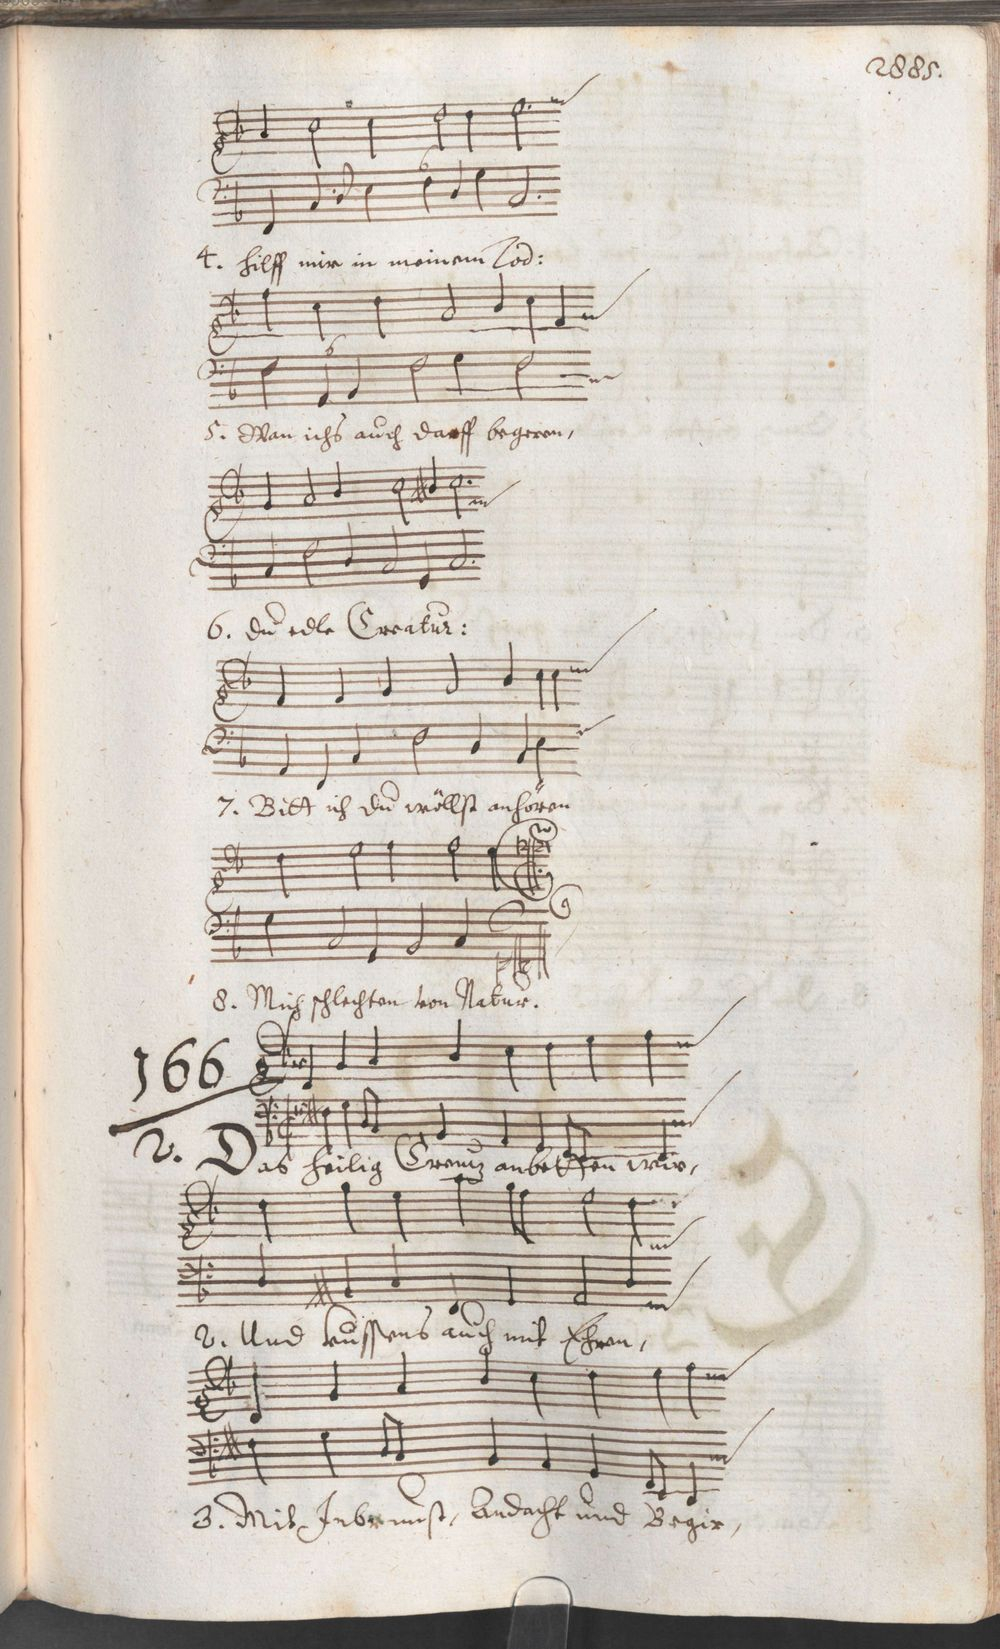 2885.
4. hilff mir in meinem Tod:
5. Wan ichs auch darff begeren,
6. Du edle Creatur:
7. Bitt ich du wöllst anhören
8. Mich schlechten von Natur.
166
2. Das heilig Creutz anbetten wir,
2. Und kussens auch mit Ehren,
3. Mit Inbrunst, Andacht und Begir,